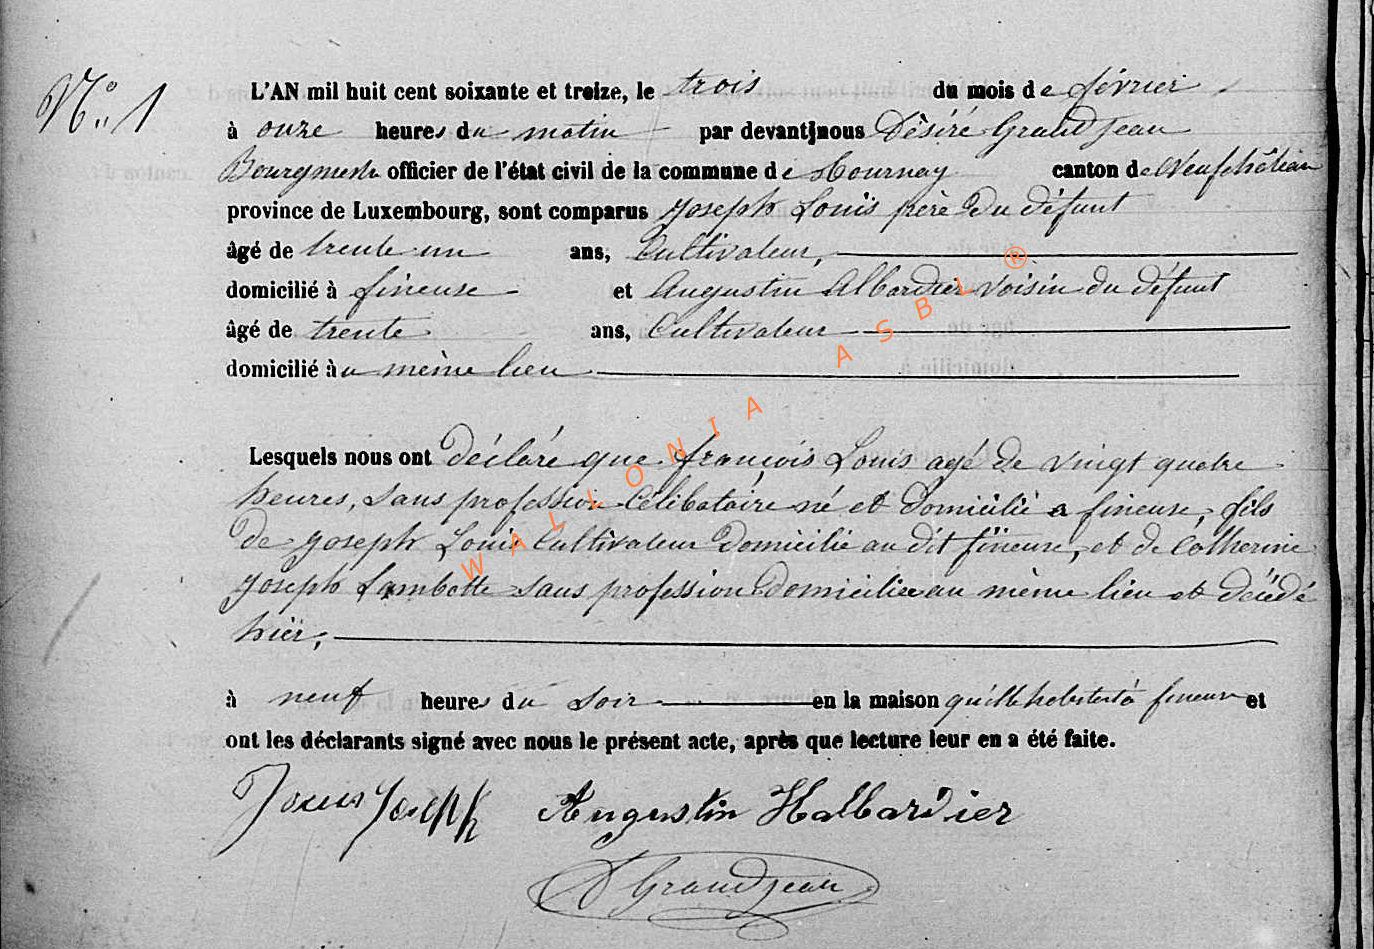 N° 1
L'AN mil huit cent soixante et treize, le trois du mois de février
à onze heures du matin par devant nous Désiré Grandjean
Bourgmestre officier de l'état civil de la commune de Tournay canton de Neufchâteau
province de Luxembourg, sont comparus Joseph Louis père du défunt
âgé de trente un ans, Cultivateur,
domicilié à fineuse et Augustin Albardier voisin du défunt
âgé de trente ans, Cultivateur
domicilié àu même lieu
Lesquels nous ont déclaré que françois Louis agé de vingt quatre
heures, sans profession Célibataire né et domicilié a fineuse, fils
de joseph Louis Cultivateur domicilié au dit fineuse, et de Catherine
Joseph Lambotte sans profession domiciliee au même lieu et décédé
hier,
à neuf heures du soir en la maison qu'ill habitert à fineuse et
ont les déclarants signé avec nous le présent acte, après que lecture leur en a été faite.
Louis Joseph Augustin Halbardier
D Grandjean
WALLONIA ASBL ®